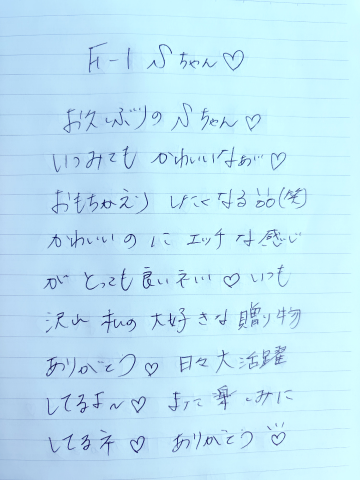 F-1 Sちゃん♡
お久しぶりの Sちゃん♡
いつみても かわいいなぁ♡
おもちかえり したくなる 品(笑)
かわいいのに エッチな感じ
が とっても良いネ!! ♡ いつも
沢山 私の 大好きな 贈り物
ありがとう♡ 日々 大活躍
してるよ〜♡ また 楽しみに
してるネ♡ ありがとう